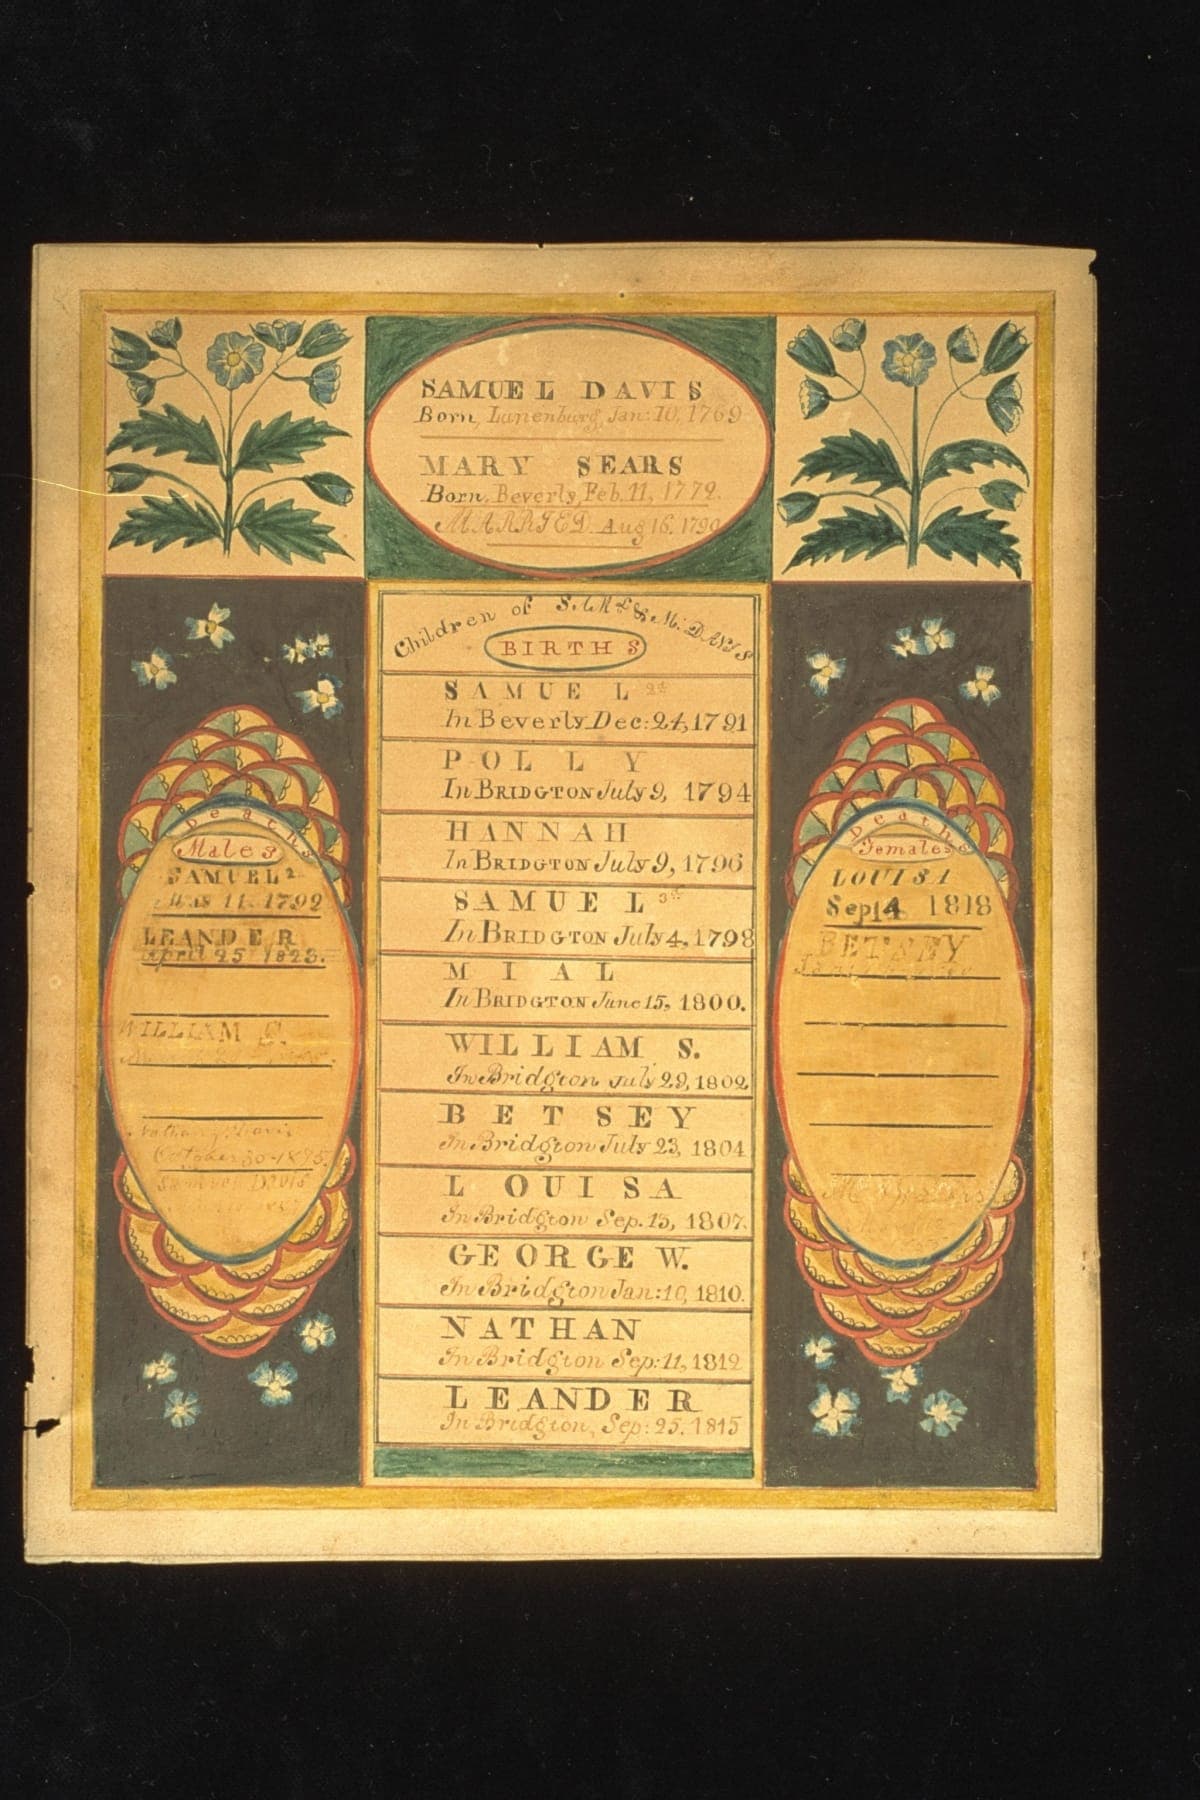 SAMUEL DAVIS
Born, Lunenburg, Jan: 10, 1769
MARY SEARS
Born, Beverly, Feb. 11, 1772.
MARRIED Aug 16, 1790
Children of S. & M. DAVIS
BIRTHS
SAMUEL 2d
In Beverly Dec: 24, 1791
POLLY
In BRIDGTON July 9, 1794
HANNAH
In BRIDGTON July 9, 1796
SAMUEL 3d
In BRIDGTON July 4, 1798
MIAL
In BRIDGTON June 15, 1800.
WILLIAM S.
In Bridgton July 29, 1802
BETSEY
In Bridgton July 23, 1804
LOUISA
In Bridgton Sep. 13, 1807.
GEORGE W.
In Bridgton Jan: 10, 1810.
NATHAN
In Bridgton Sep: 11, 1812
LEANDER
In Bridgton, Sep: 25. 1815
Deaths
Males
SAMUEL 2
11. 1792
LEANDER
April 25 1823.
WILLIAM S.
Nathan Davis
October 30-1895.
Samuel Davis
Deaths
Females
LOUISA
Sep 14 1818
BETSEY